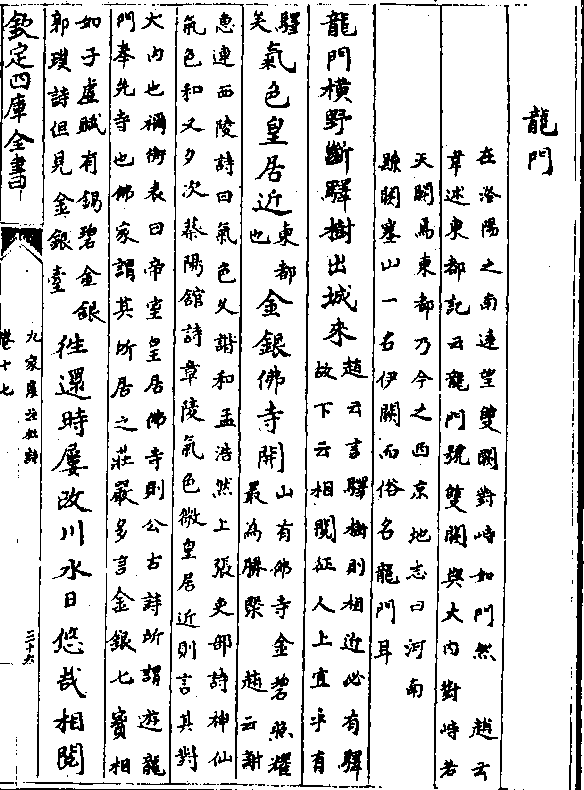 龍門
在洛陽之南連望雙闕對峙如門然　趙云
韋述東都記云龍門號雙闕與大内對峙若
天闕焉東都乃今之西京地志曰河南
縣闕塞山一名伊闕而俗名龍門耳
龍門橫野斷驛樹出城來
趙云言驛樹則相近必有驛
故下云相閱征人上宜乎有
驛
矣
氣色皇居近
東都
也
金銀佛寺開
山有佛寺金碧照耀
最為勝槩　趙云謝
惠連西陵詩曰氣色久諧和孟浩然上張吏部詩神仙
氣色和又夕次蔡陽舘詩章陵氣色微皇居近則言其對
大内也禰衡表曰帝室皇居佛寺則公古詩所謂遊龍
門奉先寺也佛家謂其所居之莊嚴多言金銀七寳相
如子虛賦有錫碧金銀
郭璞詩但見金銀臺
往還時屢改川水日悠哉相閱
欽定四庫全書
九家集注杜詩
卷十七
三十六